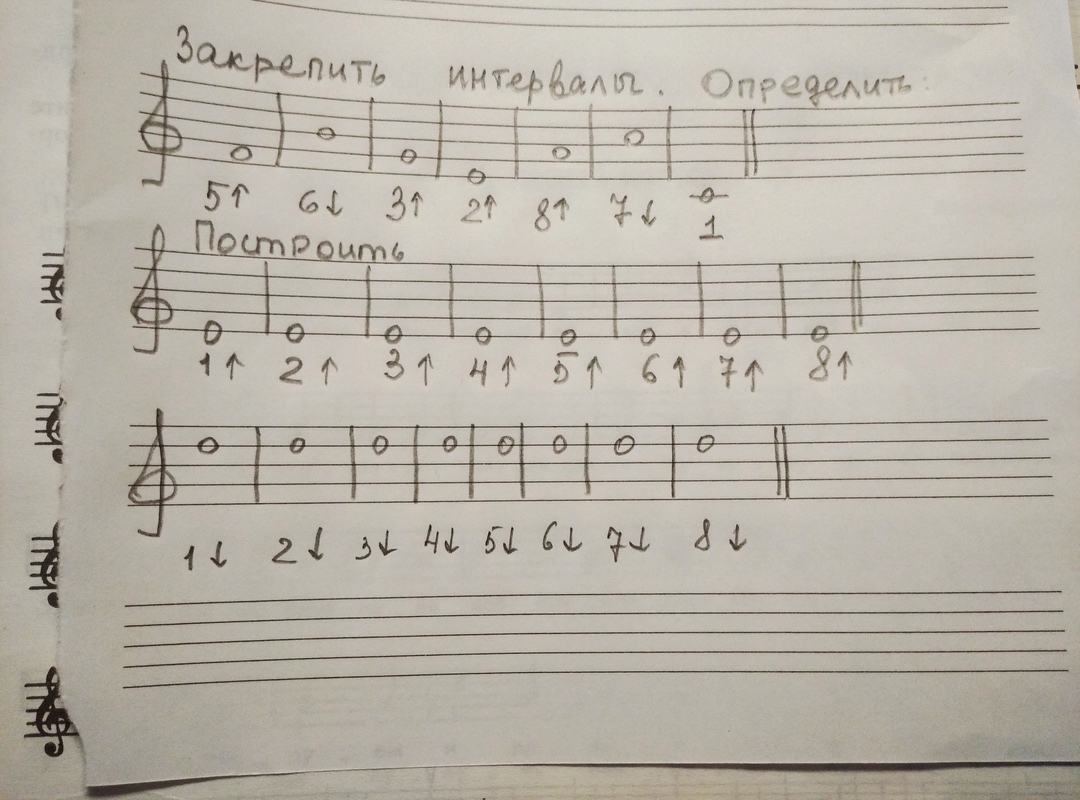 Закрепить интервалы. Определить:
5↑ 6↓ 3↑ 2↑ 8↑ 7↓ 1
Построить
1↑ 2↑ 3↑ 4↑ 5↑ 6↑ 7↑ 8↑
1↓ 2↓ 3↓ 4↓ 5↓ 6↓ 7↓ 8↓